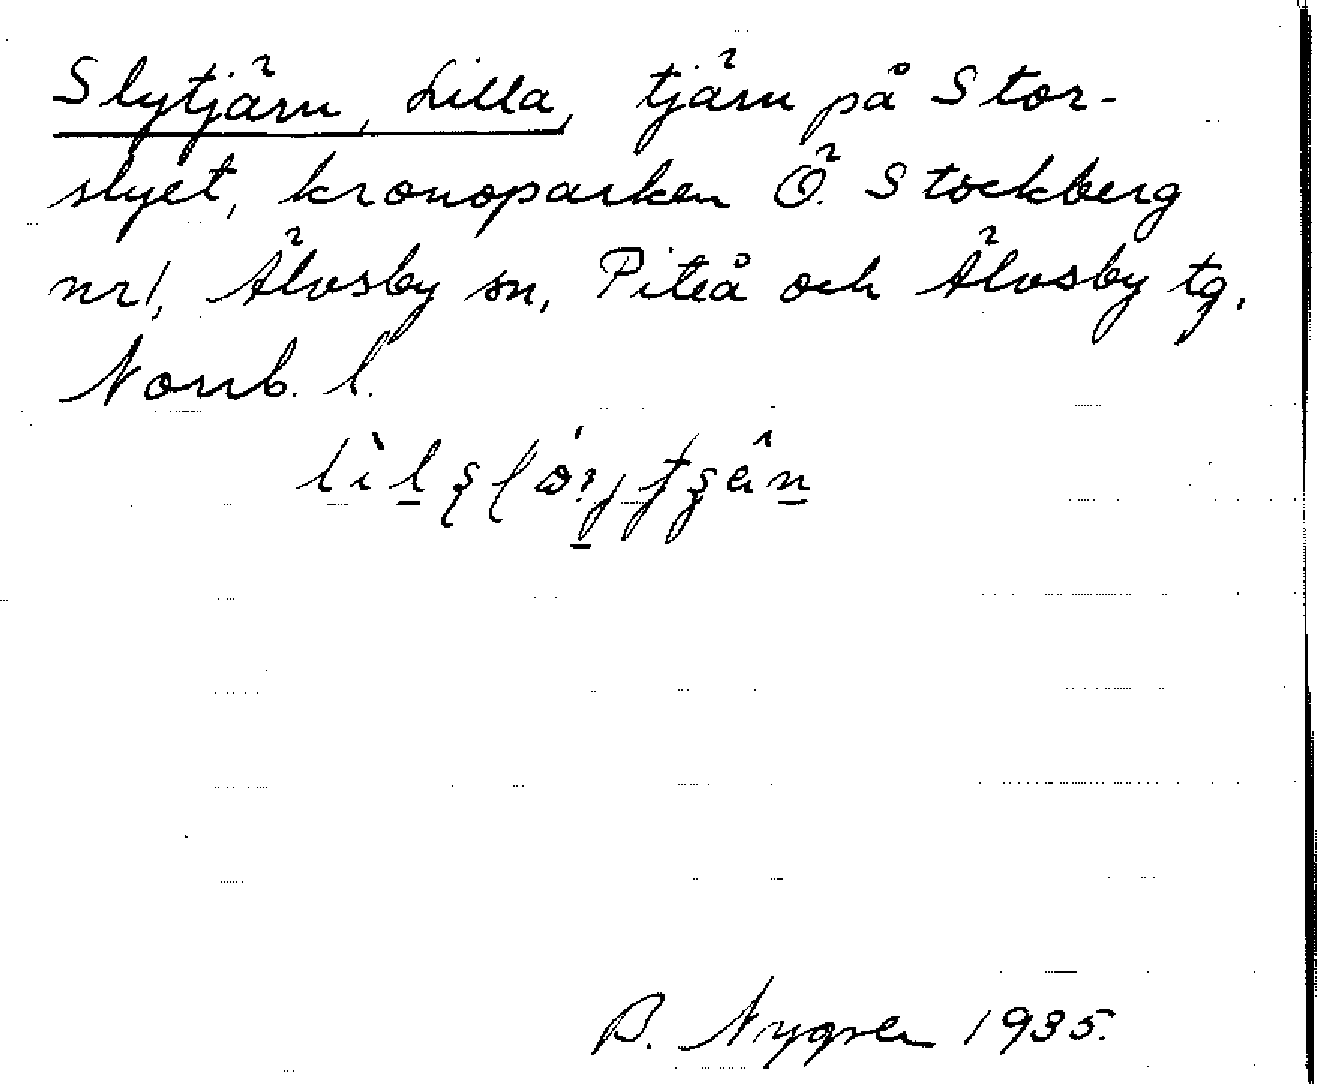 Slytjärn, Lilla, tjärn på Stor-
slyet, kronoparken Ö. Stockberg
nr 1, Älvsby sn, Piteå och Älvsby tg,
Norrb. l.
B. Nygren 1935.